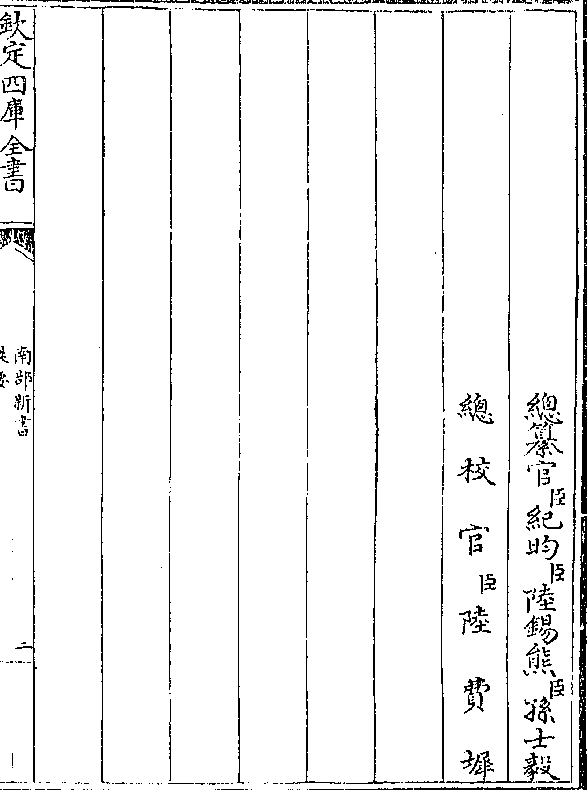 總纂官臣紀昀臣陸錫熊臣孫士毅
總校官臣陸費墀
欽定四庫全書
南部新書
提要
二